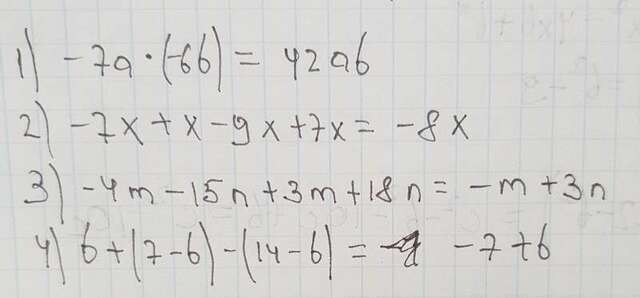 1) -7a·(-6b) = 42ab
2) -7x+x-9x+7x= -8x
3) -4m-15n+3m+18n= -m+3n
4) b+(7-b)-(14-b)= -7+b